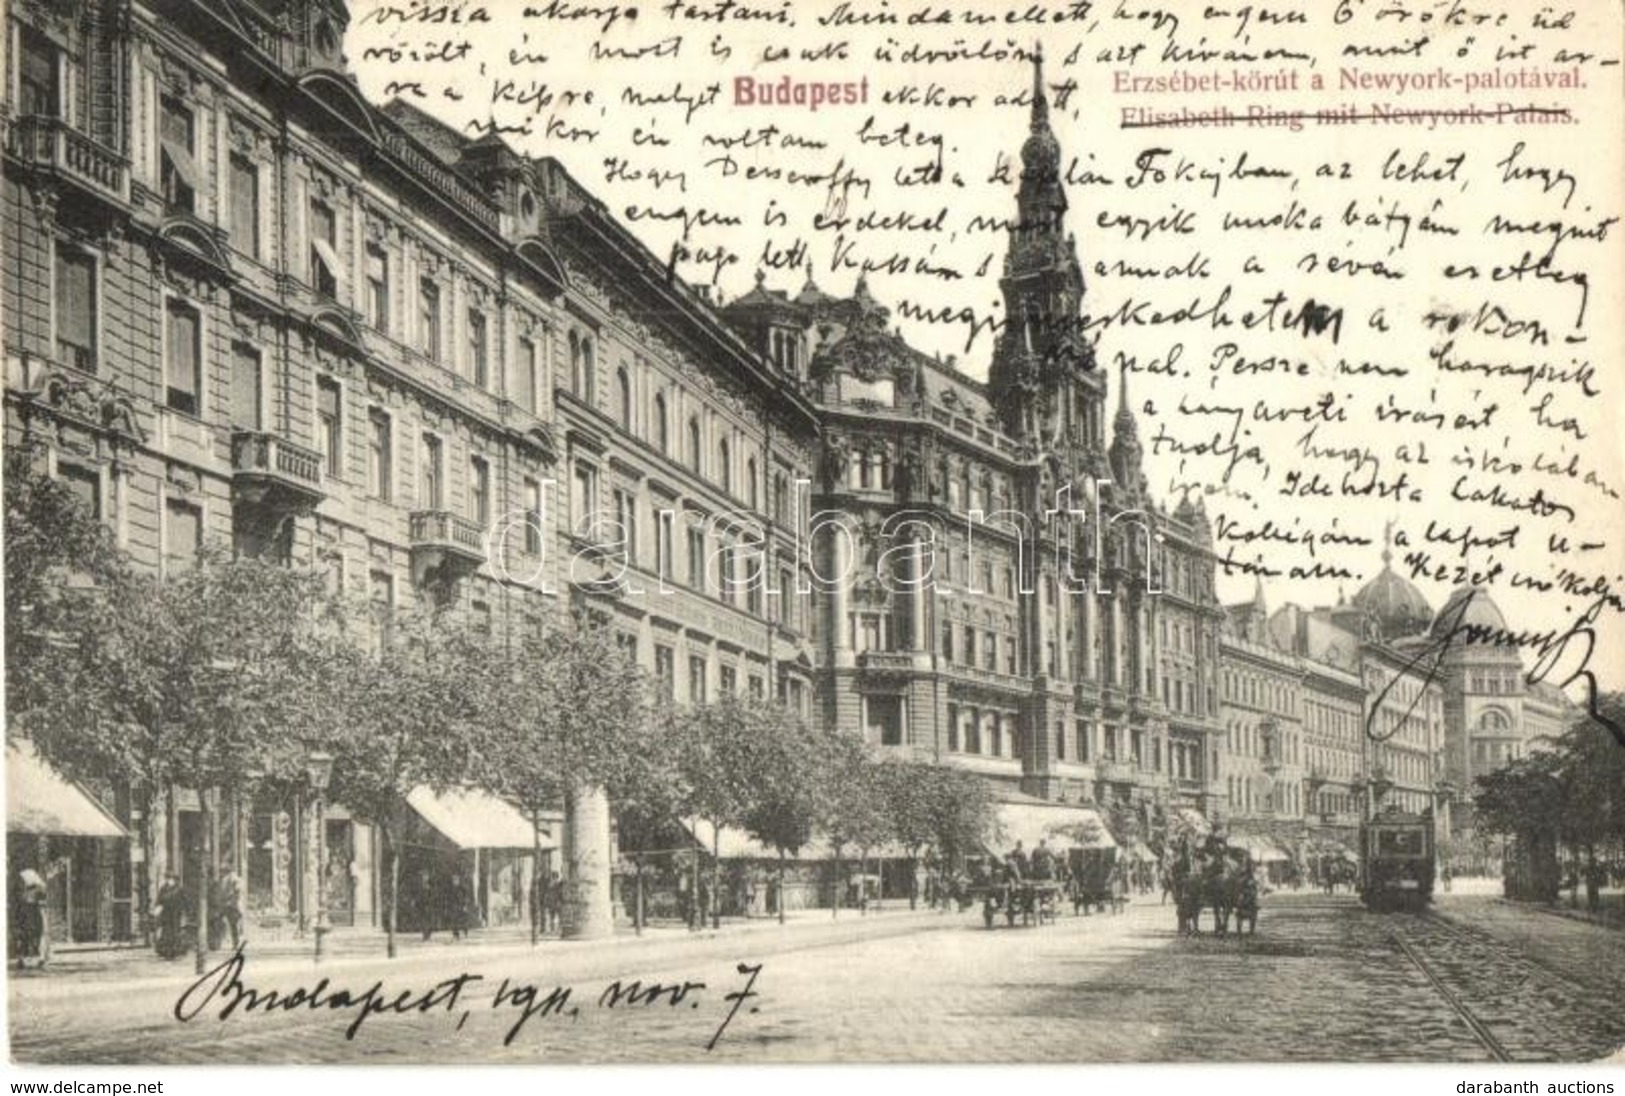 vissza akarja tartani. Mindamellett, hogy engem ő örökre üd
vözölt, én most is csak üdvözlöm s azt kívánom, mit ő írt ar-
ra a képre, melyet akkor adott,
Budapest
Erzsébet-körút a Newyork-palotával.
Elisabeth-Ring mit Newyork-Palais.
mikor én voltam beteg.
Hogy Dessewffy lett a káplán Tokajban, az lehet, hogy
engem is érdekel, mert egyik unoka bátyám megint
pap lett Kassán s annak a révén esetleg
megismerkedhetem a rokon-
nal. Persze nem haragszik
a írásért ha
tudja, hogy az iskolában
írom. Idehozta Lakatos
kollégám a lapot u-
tánam. Kezét csókolja
darabanth
Budapest, 1911. nov. 7.
www.darabanth.com
darabanth auctions